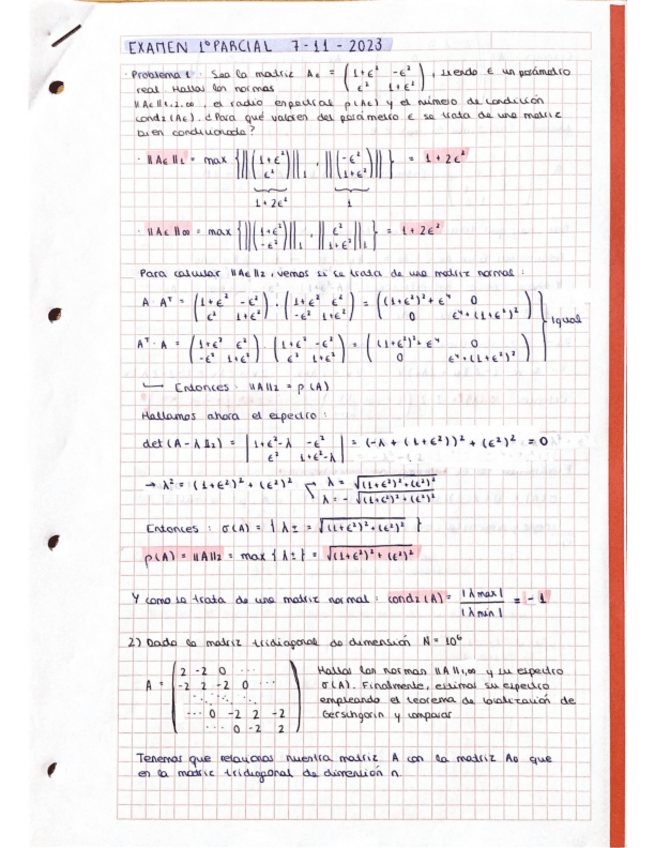 EXAMEN 1º PARCIAL 7-11-2023
· Problema 1: Sea la matriz Aϵ = (1+ϵ² -ϵ² ; ϵ² 1+ϵ²), siendo ϵ un parámetro
real. Hallar las normas
||Aϵ||1,2,∞, el radio espectral ρ(Aϵ) y el número de condición
cond2(Aϵ). ¿Para qué valores del parámetro ϵ se trata de una matriz
bien condicionada?
· ||Aϵ||1 = max { ||(1+ϵ² ; ϵ²)||1 , ||(-ϵ² ; 1+ϵ²)|| } = 1+2ϵ²
1+2ϵ² 1
· ||Aϵ||∞ = max { ||(1+ϵ² ; -ϵ²)||1 , ||ϵ² ; 1+ϵ²||1 } = 1+2ϵ²
Para calcular ||Aϵ||2, vemos si se trata de una matriz normal:
A·Aᵀ = (1+ϵ² -ϵ² ; ϵ² 1+ϵ²) · (1+ϵ² ϵ² ; -ϵ² 1+ϵ²) = ((1+ϵ²)²+ϵ⁴ 0 ; 0 ϵ⁴+(1+ϵ²)²)
Igual
Aᵀ·A = (1+ϵ² ϵ² ; -ϵ² 1+ϵ²) · (1+ϵ² -ϵ² ; ϵ² 1+ϵ²) = ((1+ϵ²)²+ϵ⁴ 0 ; 0 ϵ⁴+(1+ϵ²)²)
Entonces: ||A||2 = ρ(A)
Hallamos ahora el espectro:
det(A-λ𝟙2) = |1+ϵ²-λ -ϵ² ; ϵ² 1+ϵ²-λ| = (-λ+(1+ϵ²))² + (ϵ²)² = 0
→ λ² = (1+ϵ²)²+(ϵ²)² λ = √(1+ϵ²)²+(ϵ²)²
λ = -√(1+ϵ²)²+(ϵ²)²
Entonces: σ(A) = { λ± = √(1+ϵ²)²+(ϵ²)² }
ρ(A) = ||A||2 = max{λ±} = √(1+ϵ²)²+(ϵ²)²
Y como se trata de una matriz normal: cond2(A) = |λmax| / |λmin| = -1
2) Dado la matriz tridiagonal de dimensión N = 10⁶
A = (2 -2 0 ... ; -2 2 -2 0 ... ; ... ; ... 0 -2 2 -2 ; ... 0 -2 2)
Hallar las normas ||A||1,∞ y su espectro
σ(A). Finalmente, estimar su espectro
empleando el teorema de localización de
Gerschgorin y comparar
Tenemos que relacionar nuestra matriz A con la matriz A0 que
en la matriz tridiagonal de dimensión n.